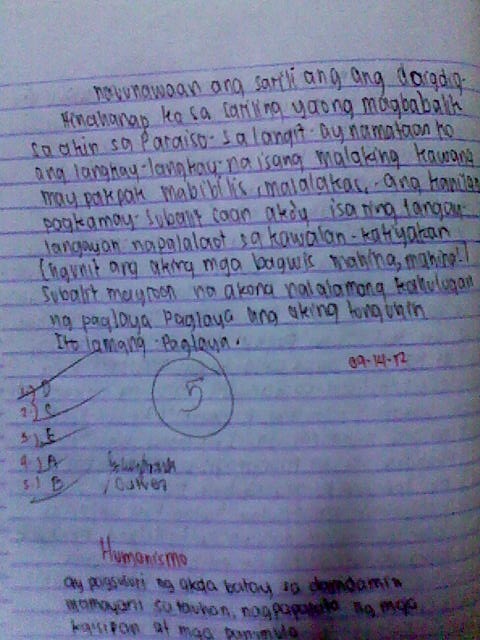 nauunawaan ang sarili ang ang daigdig.
Hinahanap ko sa sariling yaong magbabalik
sa akin sa Paraiso- sa langit- ay namataan ko
ang langkay-langkay- na isang malaking kawang
may pakpak mabibilis, malalakas,- ang kanilang
pagkamay- Subalit saan ako'y isa ring langay-
langayan napalalaot sa kawalan-
(ngunit ang aking mga bagwis mahina, mahina!)
Subalit mayroon na akong nalalamang kahulugan
ng paglaya Paglaya ang aking tunguhin
Ito lamang- Paglaya.
09-14-12
1.) D
2.) C
3.) E
4.) A
5.) B
5
Humanismo
ay pagsusuri ng akda batay sa damdamin
namayani sa tauhan, nagpapakita ng mga
kaisipan at mga